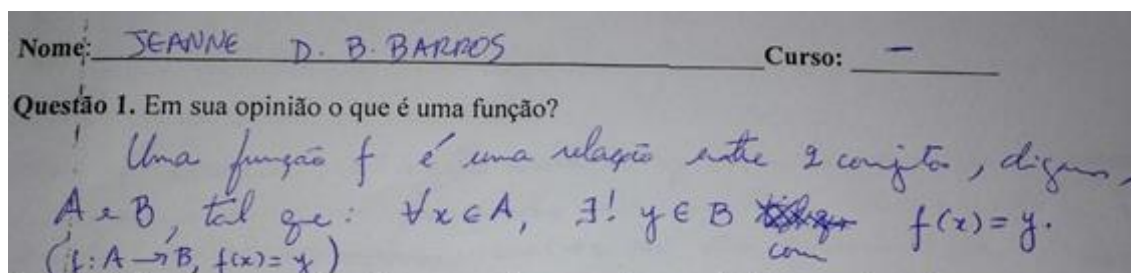 Nome: JEANNE D. B. BARROS Curso: —
Questão 1. Em sua opinião o que é uma função?
Uma função f é uma relação entre 2 conjutos, digamos,
A e B, tal que: ∀x∈A, ∃! y∈B com f(x)=y.
(f: A→B, f(x)=y)